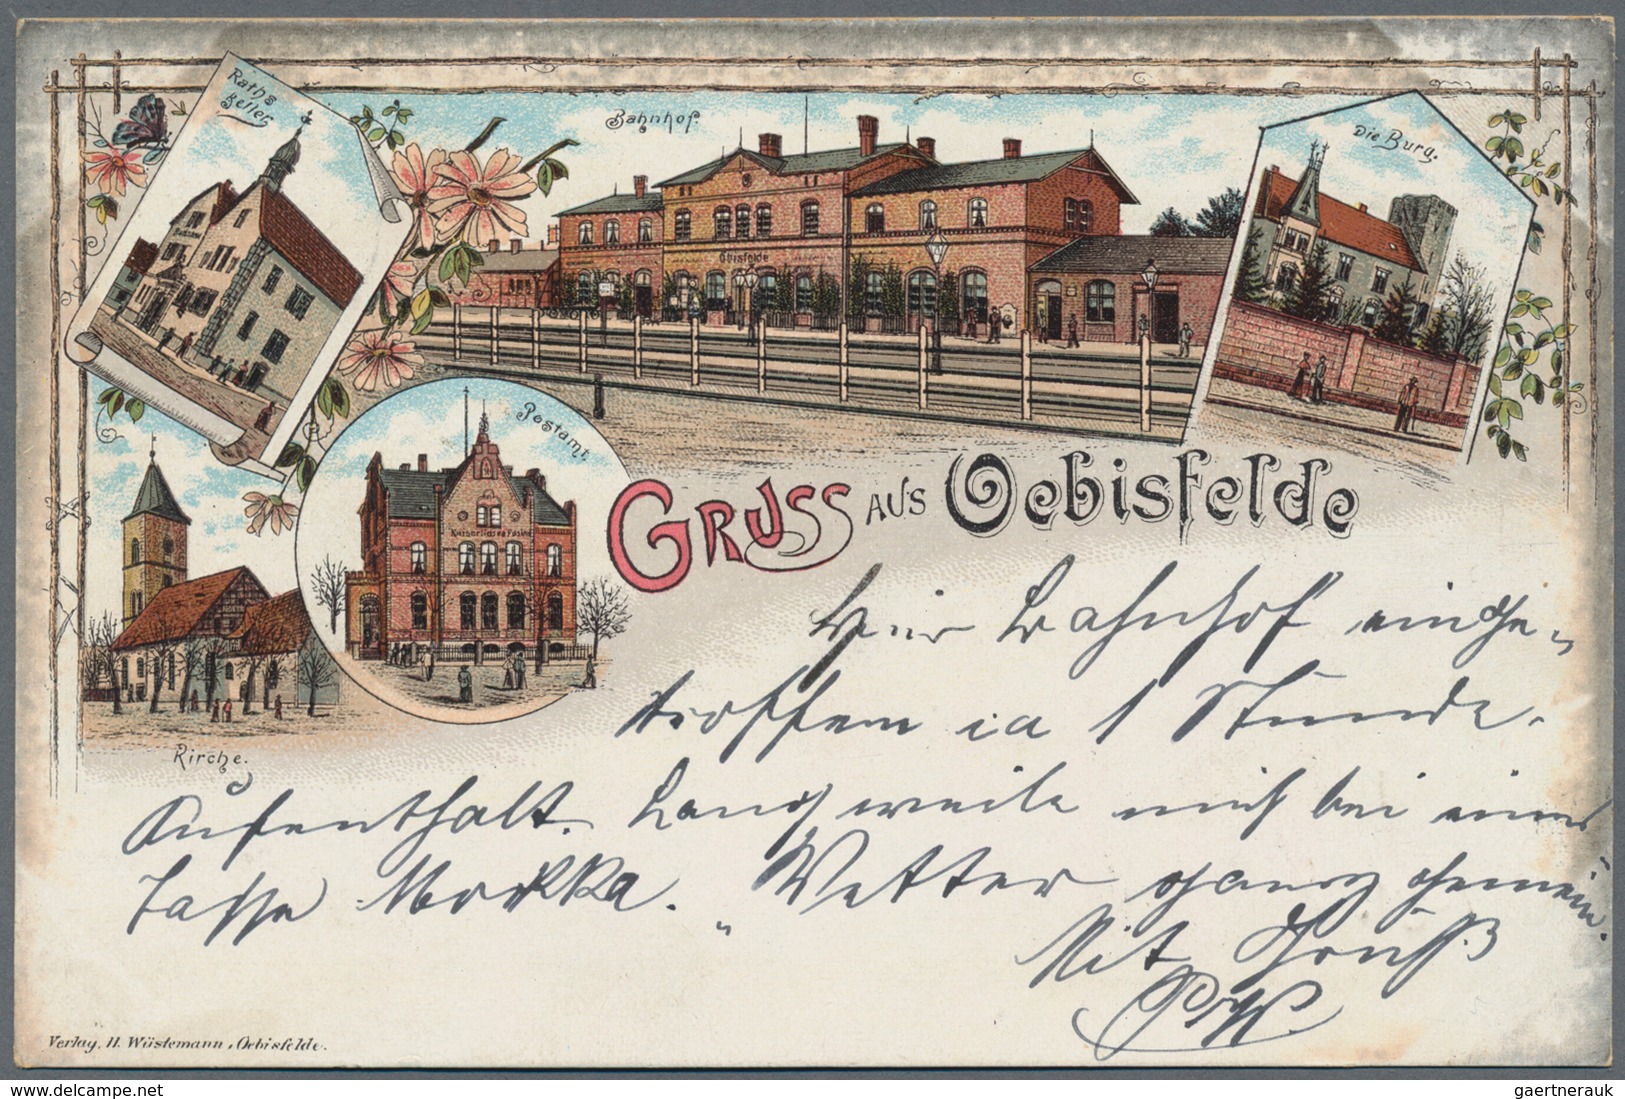 Raths
Keller
Bahnhof.
Die Burg.
Obisfelde
Postamt.
Kaiserliches Postamt
Kirche.
GRUSS AUS Oebisfelde
Bahnhof einge-
troffen ca 1 Stunde.
Aufenthalt. Langweile mich bei einer
Tasse Mokka. „Wetter ganz gemein.
Mit Gruß
Verlag. H. Wüstemann, Oebisfelde.
gaertnerauk